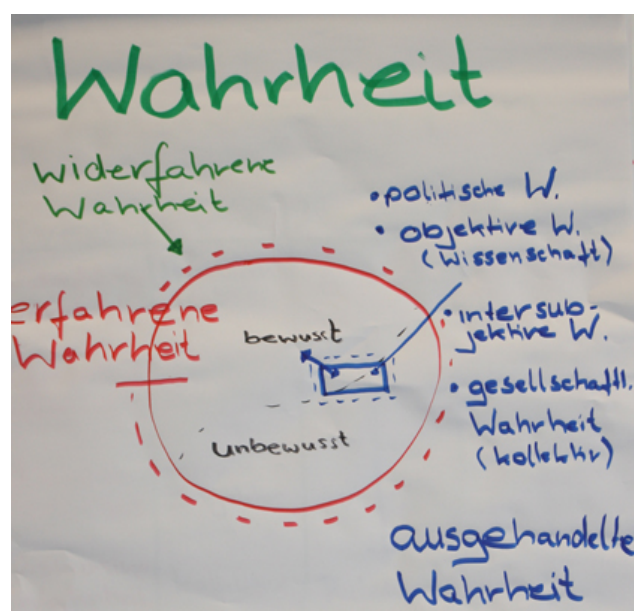 Wahrheit
widerfahrene
Wahrheit
erfahrene
Wahrheit
bewusst
unbewusst
• politische W.
• objektive W.
(Wissenschaft)
• intersub-
jektive W.
• gesellschaftl.
Wahrheit
(kollektiv)
ausgehandelte
Wahrheit